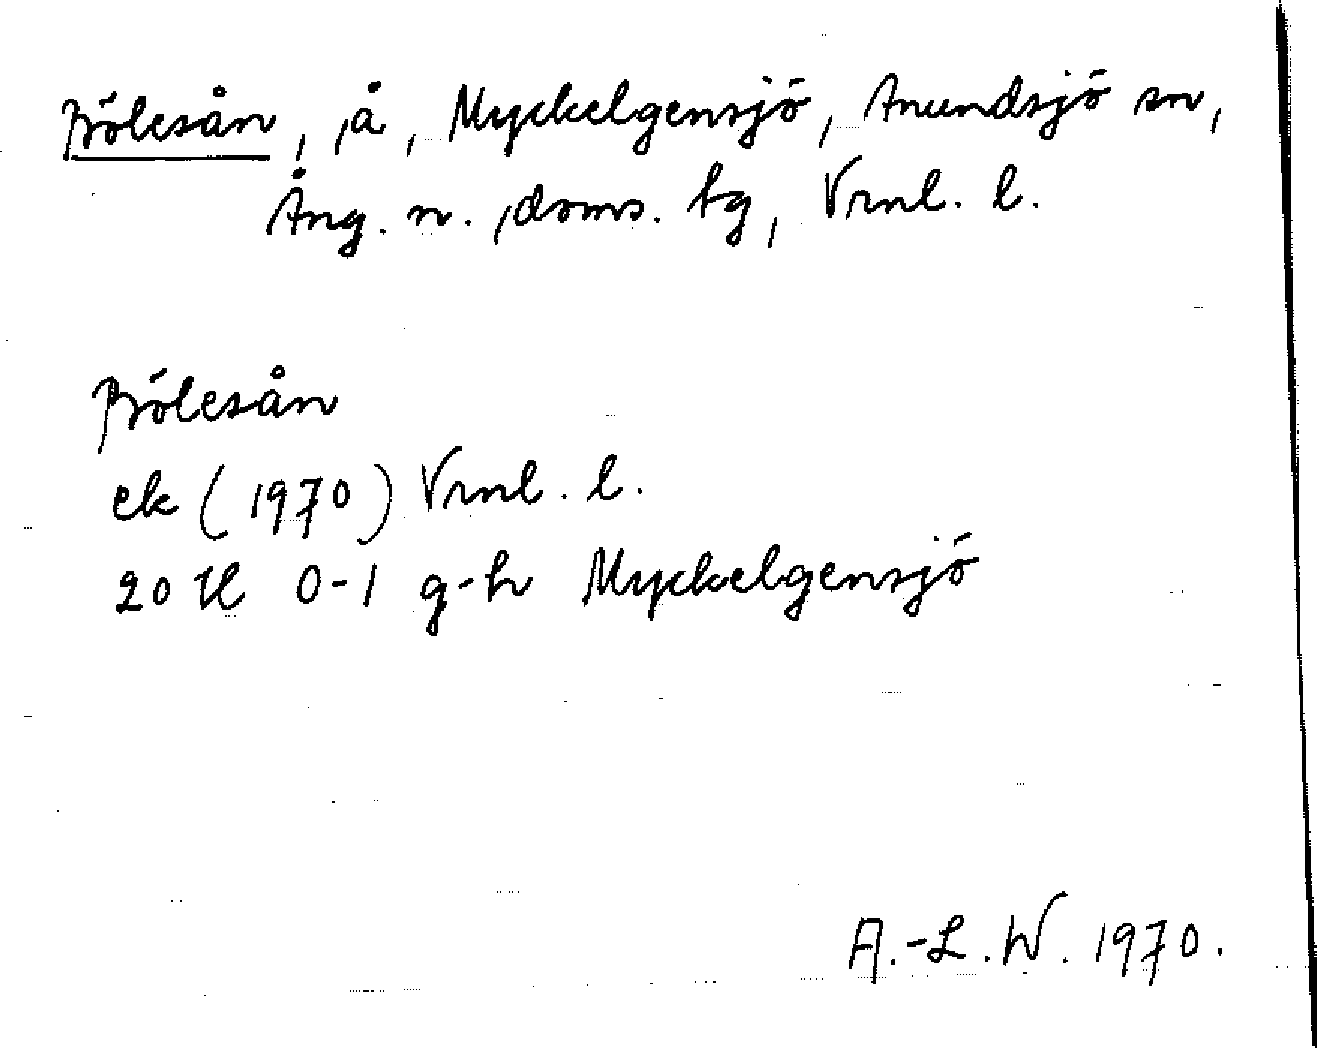 Bölesån, å, Myckelgensjö, Anundsjö sn,
Ång. n. doms. tg, Vrnl. l.
Bölesån
ek (1970) Vrnl. l.
20 H 0-1 g-h Myckelgensjö
A.-L.W. 1970.